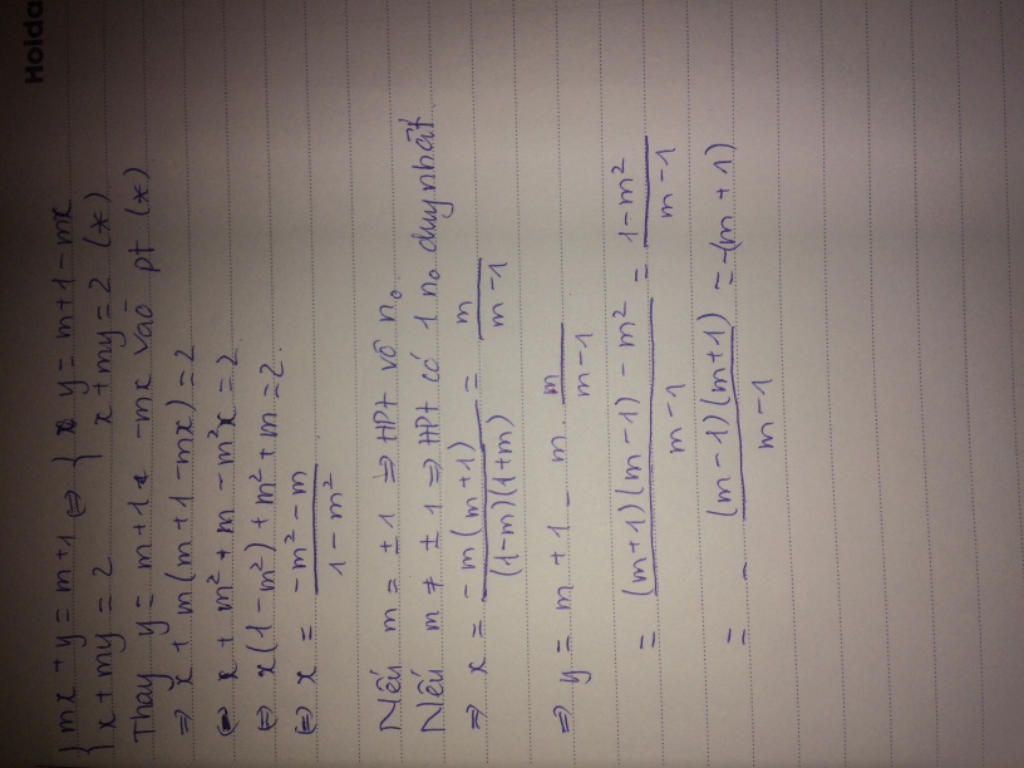 Holda
{ mx + y = m + 1 ⇔ { y = m + 1 - mx
{ x + my = 2 { x + my = 2 (*)
Thay y = m + 1 - mx vào pt (*)
⇒ x + m(m + 1 - mx) = 2
⇔ x + m² + m - m²x = 2
⇔ x(1 - m²) + m² + m = 2
⇔ x = -m² - m / 1 - m²
Nếu m = ± 1 ⇒ HPt vô n₀
Nếu m ≠ ± 1 ⇒ HPt có 1 n₀ duy nhất
⇒ x = - m(m+1) / (1-m)(1+m) = m / m - 1
⇒ y = m + 1 - m . m / m - 1
= (m+1)(m-1) - m² / m - 1 = 1 - m² / m - 1
= - (m-1)(m+1) / m - 1 = -(m + 1)